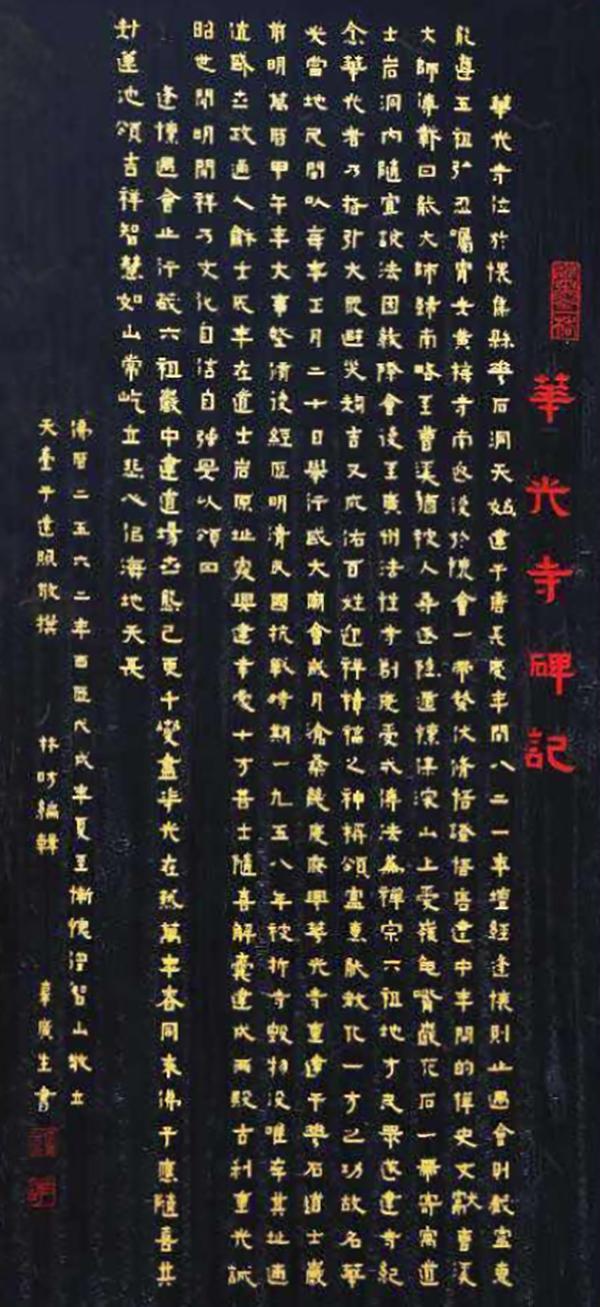 華光寺碑記
華光寺位於懷集縣華石洞天始建于唐長慶年間八二一年壇經逢懷則止遇會則藏盧惠
能遵五祖弘忍囑宵去黃梅寺南返後於懷會一帶發伏修悟證悟唐建中年間的禪史文獻曹溪
大師傳載曰能大師歸南略至曹溪猶被人尋逐隱遁懷集深山上愛嶺龜嘴巖花石一帶寄寓道
士岩洞內隨宜說法因緣際會後至廣州法性寺剃度受戒傳法為禪宗六祖地方民眾遂建寺紀
念華光者乃指引大眾避災趨吉又庇佑百姓迎祥積福之神稱頌盧惠能教化一方之功故名華
光當地民間以每年正月二十日舉行盛大廟會歲月滄桑幾度廢興華光寺重建于華石道士巖
前明萬曆甲午年大事整清後經歷明清民國抗戰時期一九五八年被拆寺毀物沒唯存其址適
值盛世政通人龢士民本在道士岩原址復興建幸蒙十方善士隨喜解囊建成兩殿古刹重光誠
昭世間明開祥乃文化自信自強是以頌曰
逢懷遇會止行藏六祖巖中建道場世態已更千變盡華光在茲萬年春同來佛子應隨喜共
對蓮池頌吉祥智慧如山常屹立悲心似海地天長
佛曆二五六二年西歷戊戌年夏至慚愧澄智山敬立
天臺干達照敬撰 林時編輯 辜廣生書